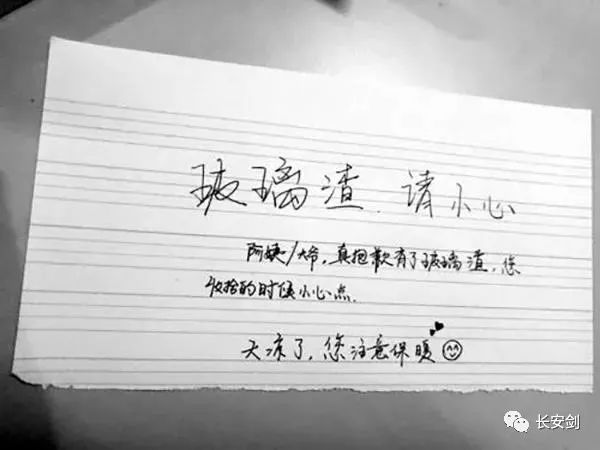 玻璃渣.请小心
阿姨/大爷，真抱歉有了玻璃渣，您
收拾的时候小心点.
天凉了，您注意保暖
长安剑